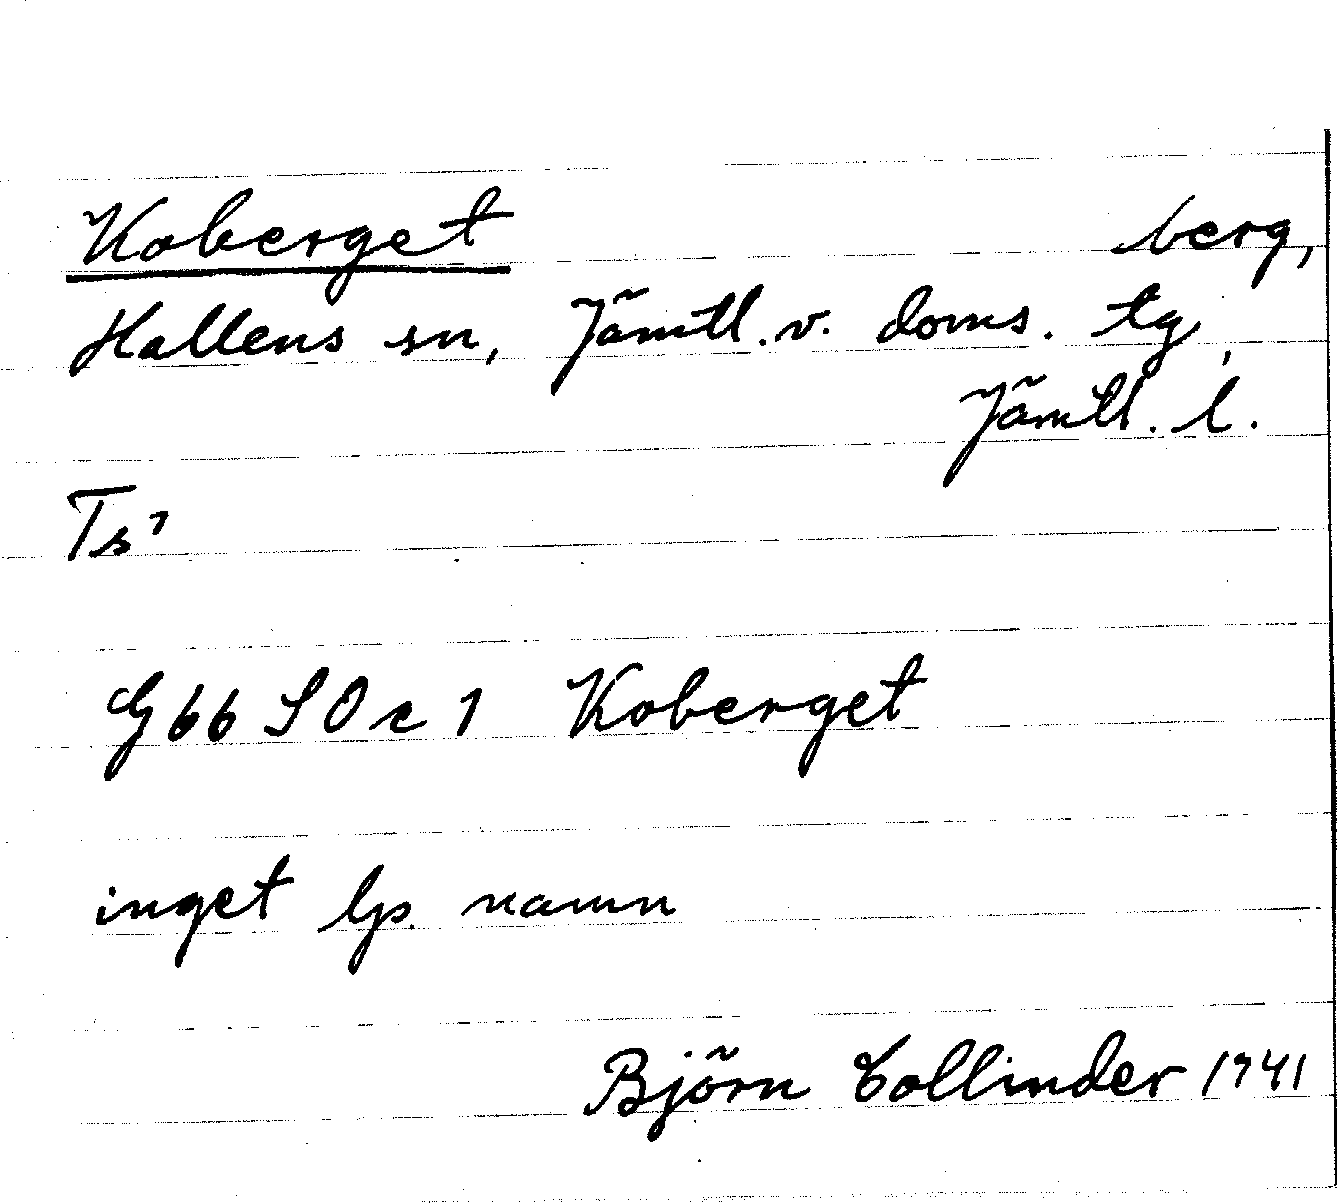 Koberget berg,
Hallens sn, Jämtl. v. doms. tg,
Jämtl. l.
Ts 7
G 66 SO c 1 Koberget
inget lp. namn
Björn Collinder 1941